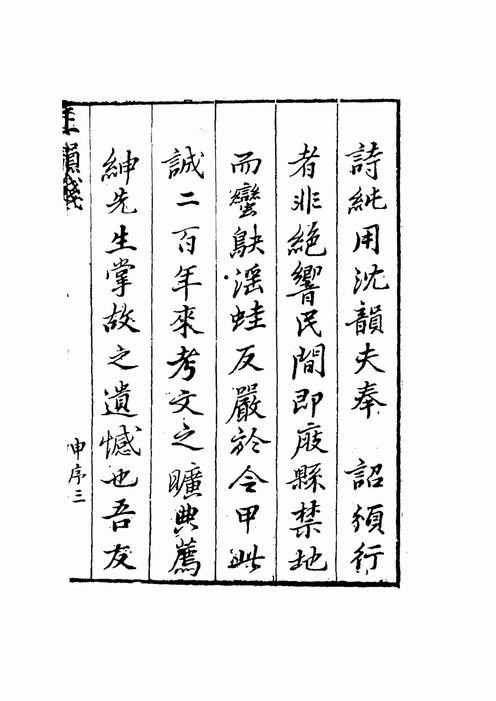 詩純用沈韻夫奉　詔頒行
者非絕響民間即廠縣禁地
而蠻鴃淫蛙反嚴於令甲此
誠二百年來考文之曠典薦
紳先生掌故之遺憾也吾友
韻箋
申序三